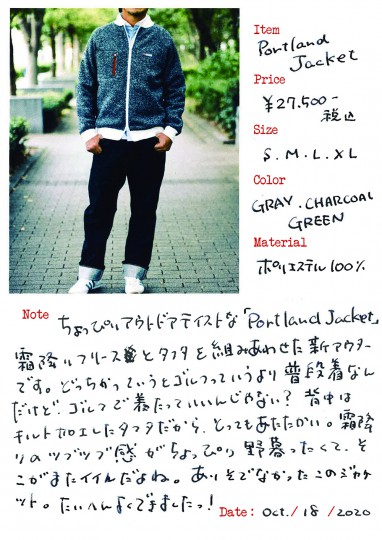 Item
Portland
Jacket
Price
¥27.500-
税込
Size
S . M . L . XL
Color
GRAY . CHARCOAL
GREEN
Material
ポリエステル100%
Note
ちょっぴりアウトドアテイストな「Portland Jacket」
霜降りフリースとタフタを組みあわせた新アウター
です。どっちかっていうとゴルフっていうより普段着なん
だけど、ゴルフで着たっていいんじゃない? 背中は
キルト加工したタフタだから、とってもあたたかい。霜降
りのツブツブ感がちょっぴり野暮ったくて、そ
こがまたイイんだよね。ありそでなかったこのジャケ
ット。たいへんよくできましたっ!
Date: Oct./18/2020